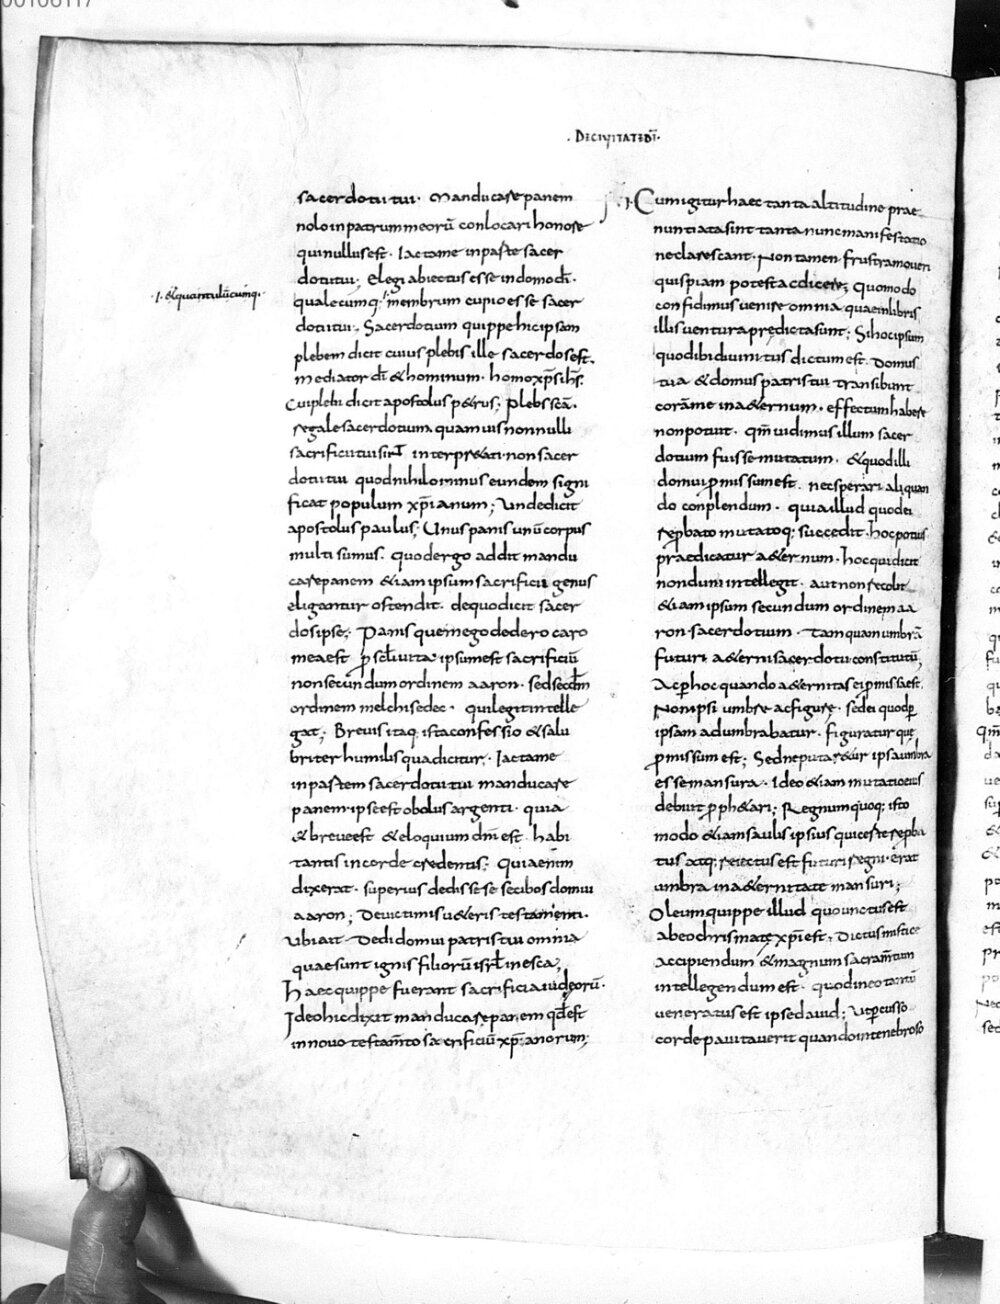 00106117
· DECIVITATEDĪ·
sacerdotii tui · Manducare panem
nolo inpatrum meorū conlocari honore
qui nullus est · Iacta me inparte sacer
dotii tui; Elegi abiectus esse indomo dī ·
·I· &quantulūcumq;·
qualecumq; membrum cupio esse sacer
dotii tui · Sacerdotium quippe hic ipsam
plebem dicit cuius plebis ille sacerdos est.
mediator dī & hominum · homo xp̄s ih̄s;
Cui plebi dicit apostolus p&rus; Plebs scā ·
regale sacerdotium quamuis nonnulli
sacrificii tui sint interpr&ati non sacer
dotii tui quod nihilominus eundem signi
ficat populum xp̄ianum; Unde dicit
apostolus paulus; Unus panis unū corpus
multi sumus · quod ergo addit mandu
care panem &iam ipsum sacrificii genus
eliganter ostendit · de quo dicit sacer
dos ipse; Panis quem ego dedero caro
mea est p̱ sc̄li uita · ipsum est sacrificiū
non secundum ordinem aaron · sed secd̄m
ordinem melchisedec · qui legit intelle
gat; Breuis itaq; ista confessio & salu
briter humilis qua dicitur · Iacta me
inpartem sacerdotii tui manducare
panem · ipse est obolus argenti · quia
& breue est & eloquium dn̄i est · habi
tantis in corde credentis; Quia enim
dixerat · superius dedisse se cibos domui
aaron; De uictimis u&eris testamenti ·
ubi ait · Dedi domui patris tui omnia
quae sunt ignis filiorū isrl̄ in esca;
Haec quippe fuerant sacrificia iudęorū ·
Ideo hic dixit manducare panem qđ est
in nouo testam̄to sacrificiū xp̄ianorum;
·I· Cum igitur haec tanta altitudine prae
nuntiata sint tanta nunc manifestatio
ne clarescant · Non tamen frustra moueri
quispiam potest ac dicere; Quomodo
confidimus uenire omnia quae inlibris
illis uentura prędicta sunt; Si hoc ipsum
quod ibi diuinitus dictum est · Domus
tua & domus patris tui transibunt
corā me ina&ernum · effectum habere
non potuit · qm̄ uidimus illum sacer
dotium fuisse mutatum · & quod illi
domui p̱missum est · nec sperari aliquan
do conplendum · quia illud quod ei
rep̱bato mutatoq; succedit · hoc potius
praedicatur a&ernum · hoc qui dicit
nondum intellegit · aut non recolit
&iam ipsum secundum ordinem aa
ron · sacerdotium · tamquam umbrā
futuri a&erni sacerdotii constitutū;
Ac p̱ hoc quando a&ernitas ei p̱missa est.
Non ipsi umbrę ac figurę · sed ei quod p̱
ipsam adumbrabatur · figuraturque
p̱missum est; Sed ne putar&ur ipsa umbra
esse mansura · Ideo &iam mutatio eius
debuit p̱ph&ari; Regnum quoq; isto
modo &iam saulis ipsius qui certe rep̱ba
tus atq; reiectus est futuri regni · erat
umbra ina&ernitate mansuri;
Oleum quippe illud quo unctus est
ab eo chrismatę xp̄i est · Dictus mistice
accipiendum & magnum sacram̄tum
intellegendum est · quod in eo tantū
ueneratus est ipse dauid; Ut p̱cusso
corde pauitauerit quando in tenebroso